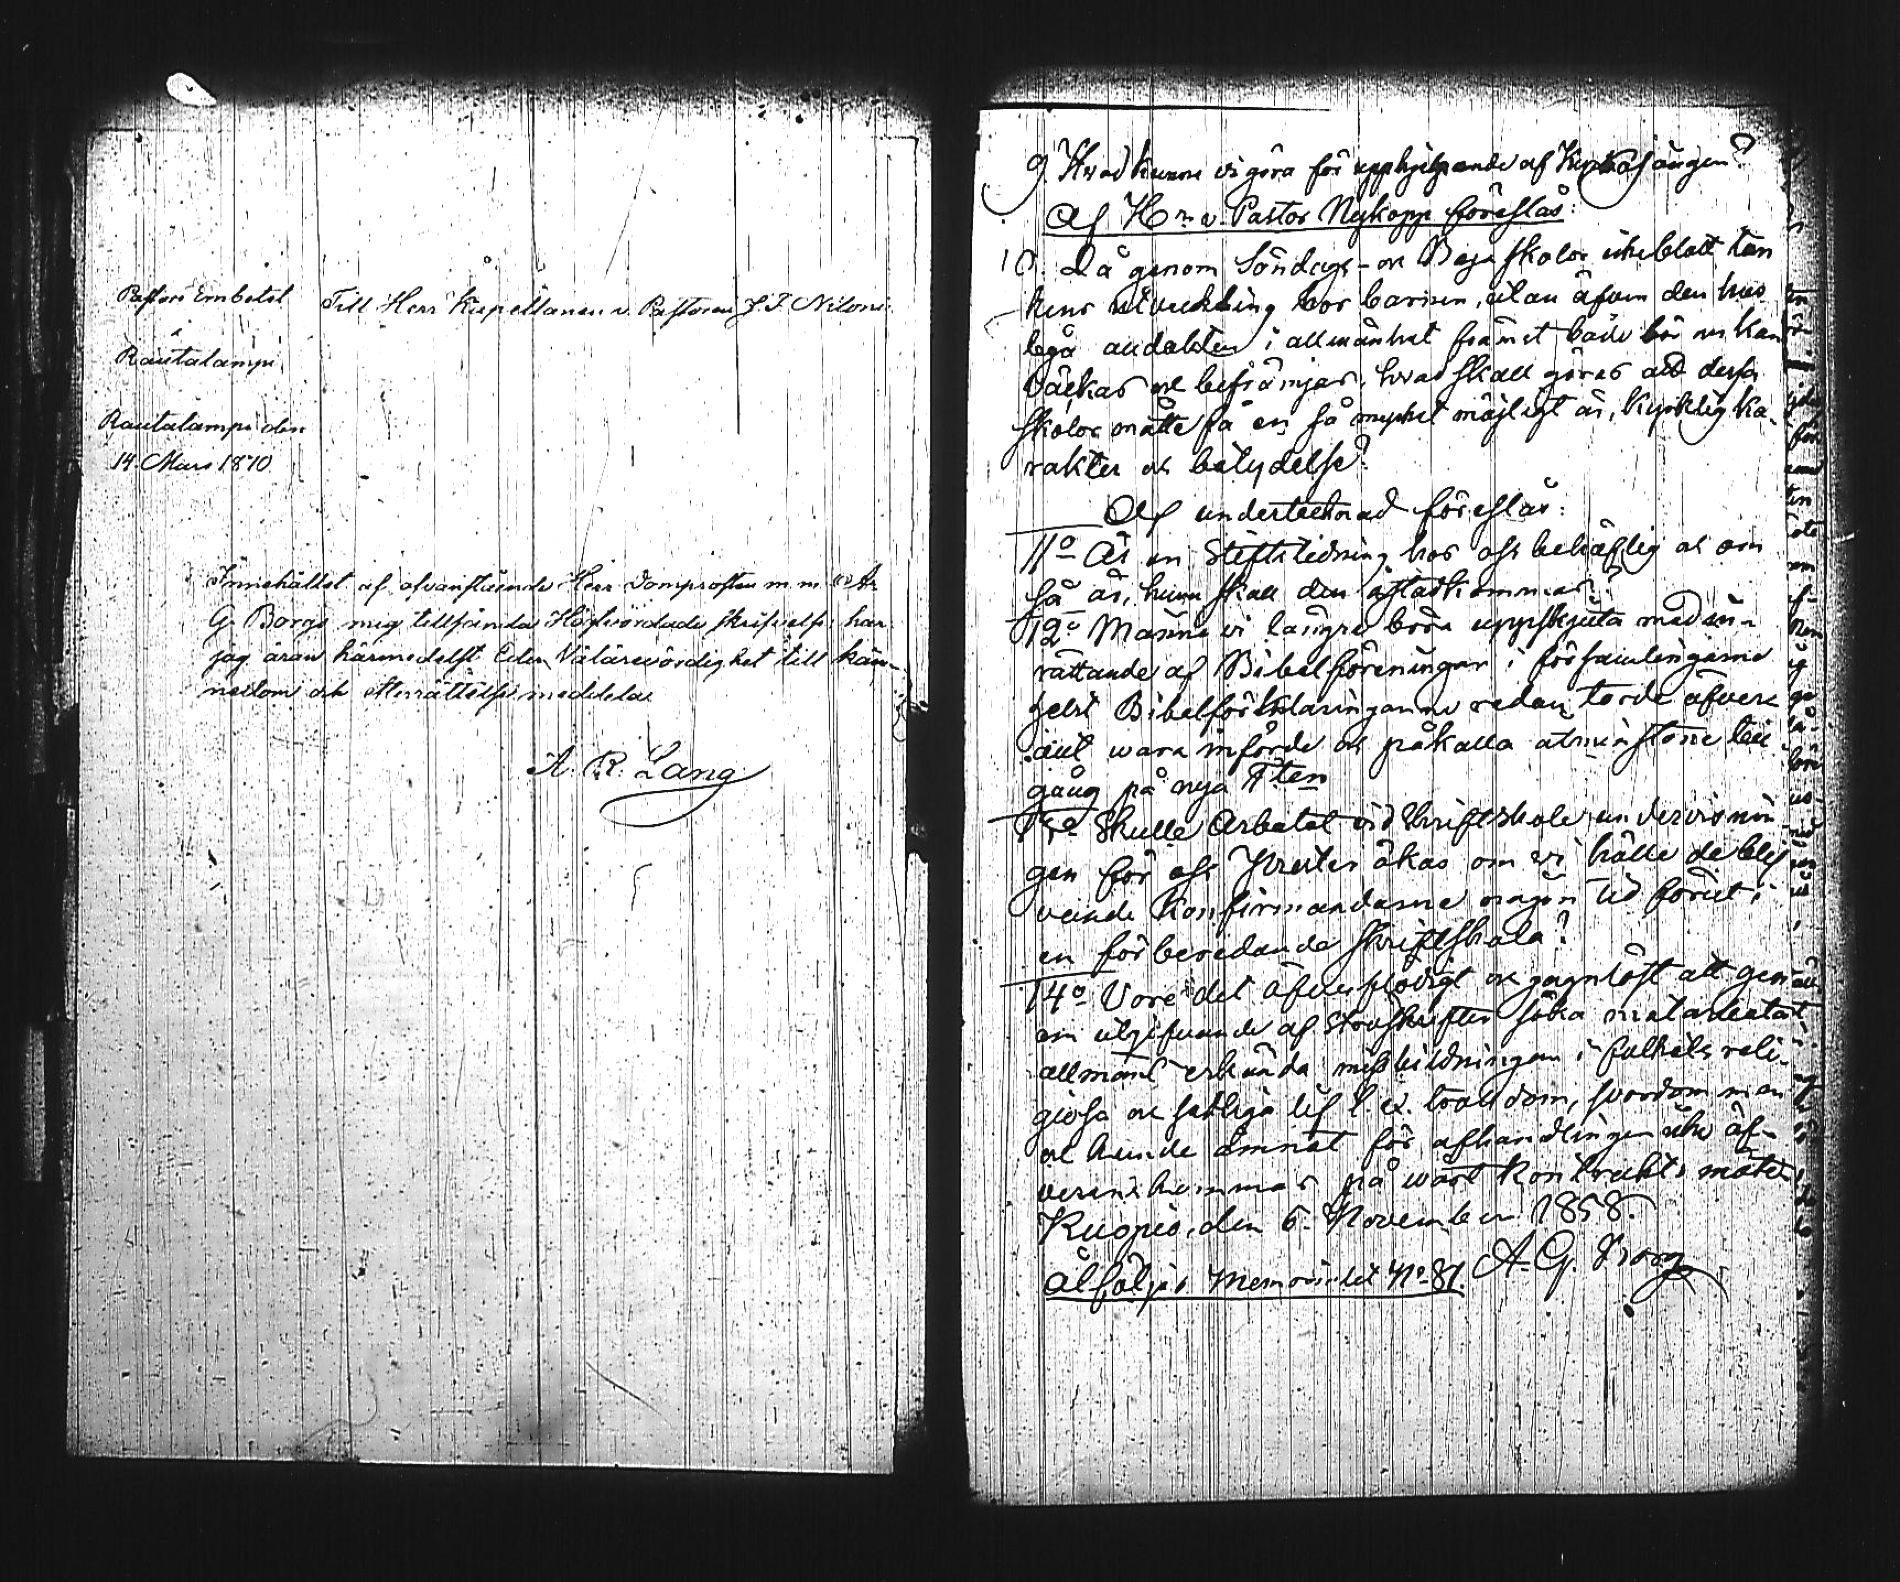 Pastors Embetet
i
Rautalampi
Rautalampi den
14 Mars 1870
Till Herr Kapellanen v. Pastoren J. F. Niloni
Innehållet af ofvanstående Herr Domprosten m m A
G. Borgs mig tillsända Högvördade skrifvelse, har
jag äran härmedelst Eder Välärevördighet till kän-
nedom och efterrättelse meddela
A. R. Lang
9. Hvad kunna vi göra för upphjelpande af Kyrkosången?
Af H:r v. Pastor Nykopp föreslås:
10. Då genom Söndags- och Byaskolor icke blott tan
kens utveckling hos barnen, utan äfven den hus
liga andakten i allmänhet främst både bör och kan
väckas och befrämjas, hvad skall göras att dessa
skolor måtte få en så mycket möjligt är, kyrklig ka-
rakter och betydelse?
Af undertecknad föreslås:
11o Är en Stiftstidning hos oss behöflig och om
så är, huru skall den åstadkommas?
12o Månne vi längre böra uppskjuta med in-
rättande af Bibelföreningar i församlingarne
helst Bibelförklaringarne redan torde äfven
allt vara införde och påkalla åtminstone
gång på nya T:ten
13o Skulle Arbetet vid Skriftskole undervisnin
gen för oss Prester ökas om vi hålle de blif
vande Konfirmandarne någon tid förut i
en förberedande Skriftskola?
14o Vore det öfverflödigt och gagnlöst att gen
om utgifvande af Ströskrifter söka motarbeta
allmänt erkända missbildningen i folkets reli-
giösa och sedliga lif t. ex. trolldom, svordom m m
och kunde ämnet för afhandlingen icke öf-
verenskommas på vårt Kontrakts möte
Kuopio, den 6 November 1858.
A. G. Borg
Åtföljes Memorialet No 81.